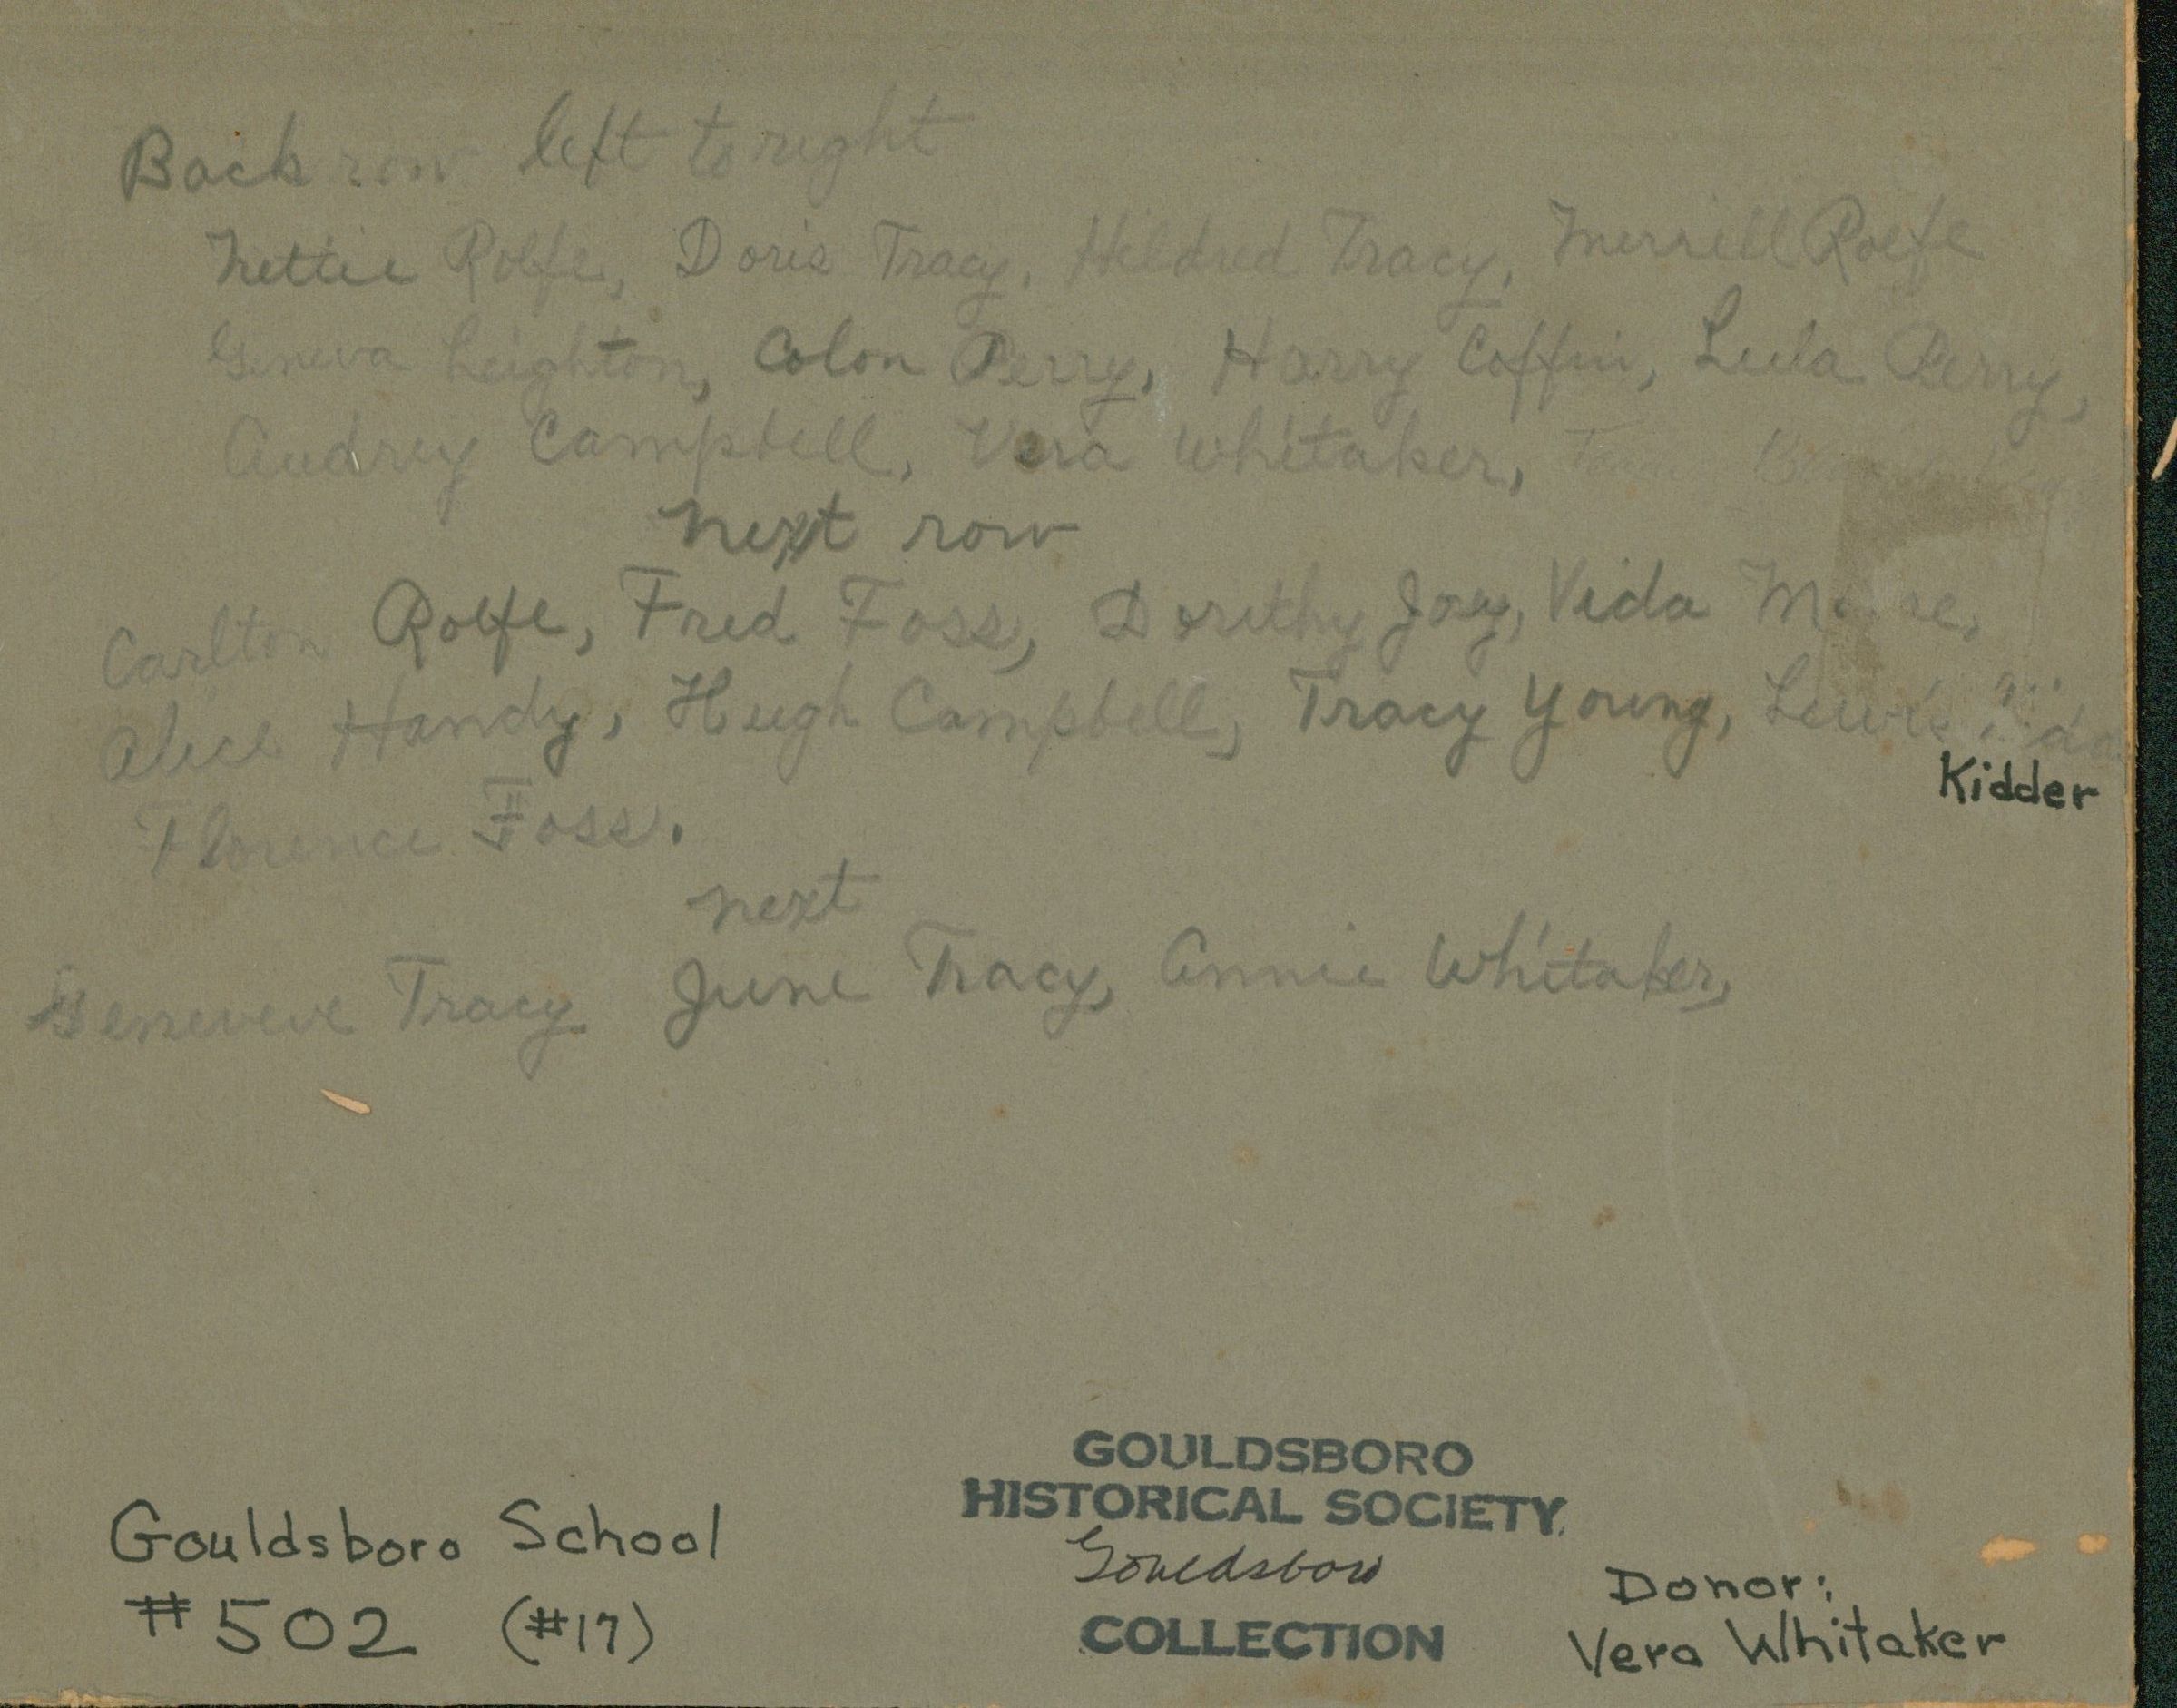 Back row left to right
Nettie Rolfe, Doris Tracy, Hildred Tracy, Merrill Rolfe
Geneva Leighton, Colon Perry, Harry Coffin, Lula Perry,
Audrey Campbell, Vera Whitaker,
next row
Carlton Rolfe, Fred Foss, Dorithy Joy, Vida
Alice Handy, Hugh Campbell, Tracy Young, Lewis
Kidder
Florence Foss.
next
Geneveve Tracy June Tracy, Annie Whitaker,
GOULDSBORO
HISTORICAL SOCIETY
Gouldsboro
COLLECTION
Gouldsboro School
#502 (#17)
Donor:
Vera Whitaker